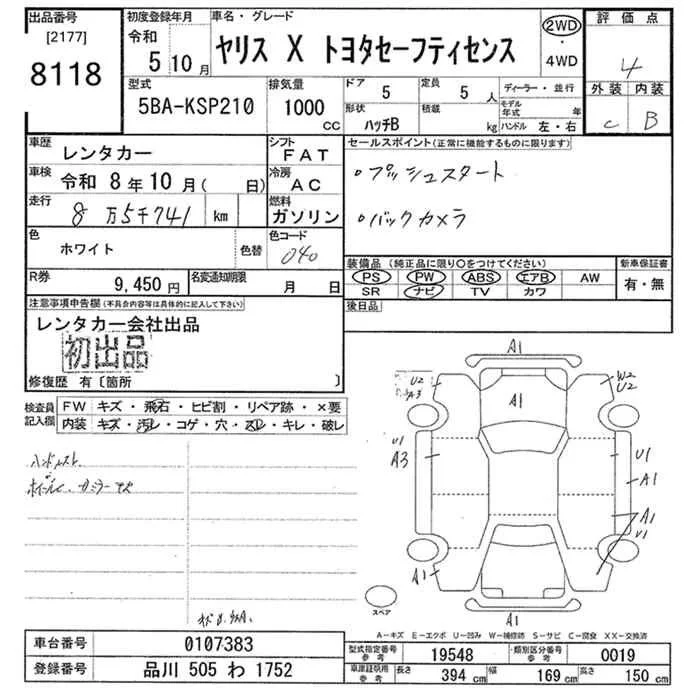 出品番号 初度登録年月 車名・グレード 2WD 評価点
[2177] 令和 ・
8118 5 10月 ヤリス X トヨタセーフティセンス 4WD 4
型式 排気量 ドア 定員 ディーラー・並行 外装 内装
5BA-KSP210 1000 CC 5 5人 モデル年式 年 C B
形状 積載 ハンドル 左・右
ハッチB kg
車歴 レンタカー シフト FAT セールスポイント(正常に機能するものに限ります)
車検 令和 8年10月( 日) 冷房 AC ・プッシュスタート
走行 8万5千741 km 燃料 ガソリン ・バックカメラ
色 ホワイト 色替 色コード 040
装備品(純正品に限り○をつけてください) 新車保証書
R券 9,450円 名変通知期限 月 日 PS PW ABS エアB AW 有・無
SR ナビ TV カワ
注意事項申告欄(不具合内容等は具体的に記入して下さい) 後日品
レンタカー会社出品
初出品
修復歴 有〔箇所 〕
検査員記入欄 FW キズ・飛石・ヒビ割・リペア跡・×要
内装 キズ・汚レ・コゲ・穴・スレ・キレ・破レ
A1
U2 A3 W2 U2
A1
U1 A3 U1 A1
A1 U1
A1
スペア A1
A-キズ E-エクボ U-凹み W-補修跡 S-サビ C-腐食 XX-交換済
車台番号 0107383 型式指定番号 参考 19548 類別区分番号 参考 0019
登録番号 品川 505 わ 1752 車庫証明用 参考 長さ 394 cm 幅 169 cm 高さ 150 cm